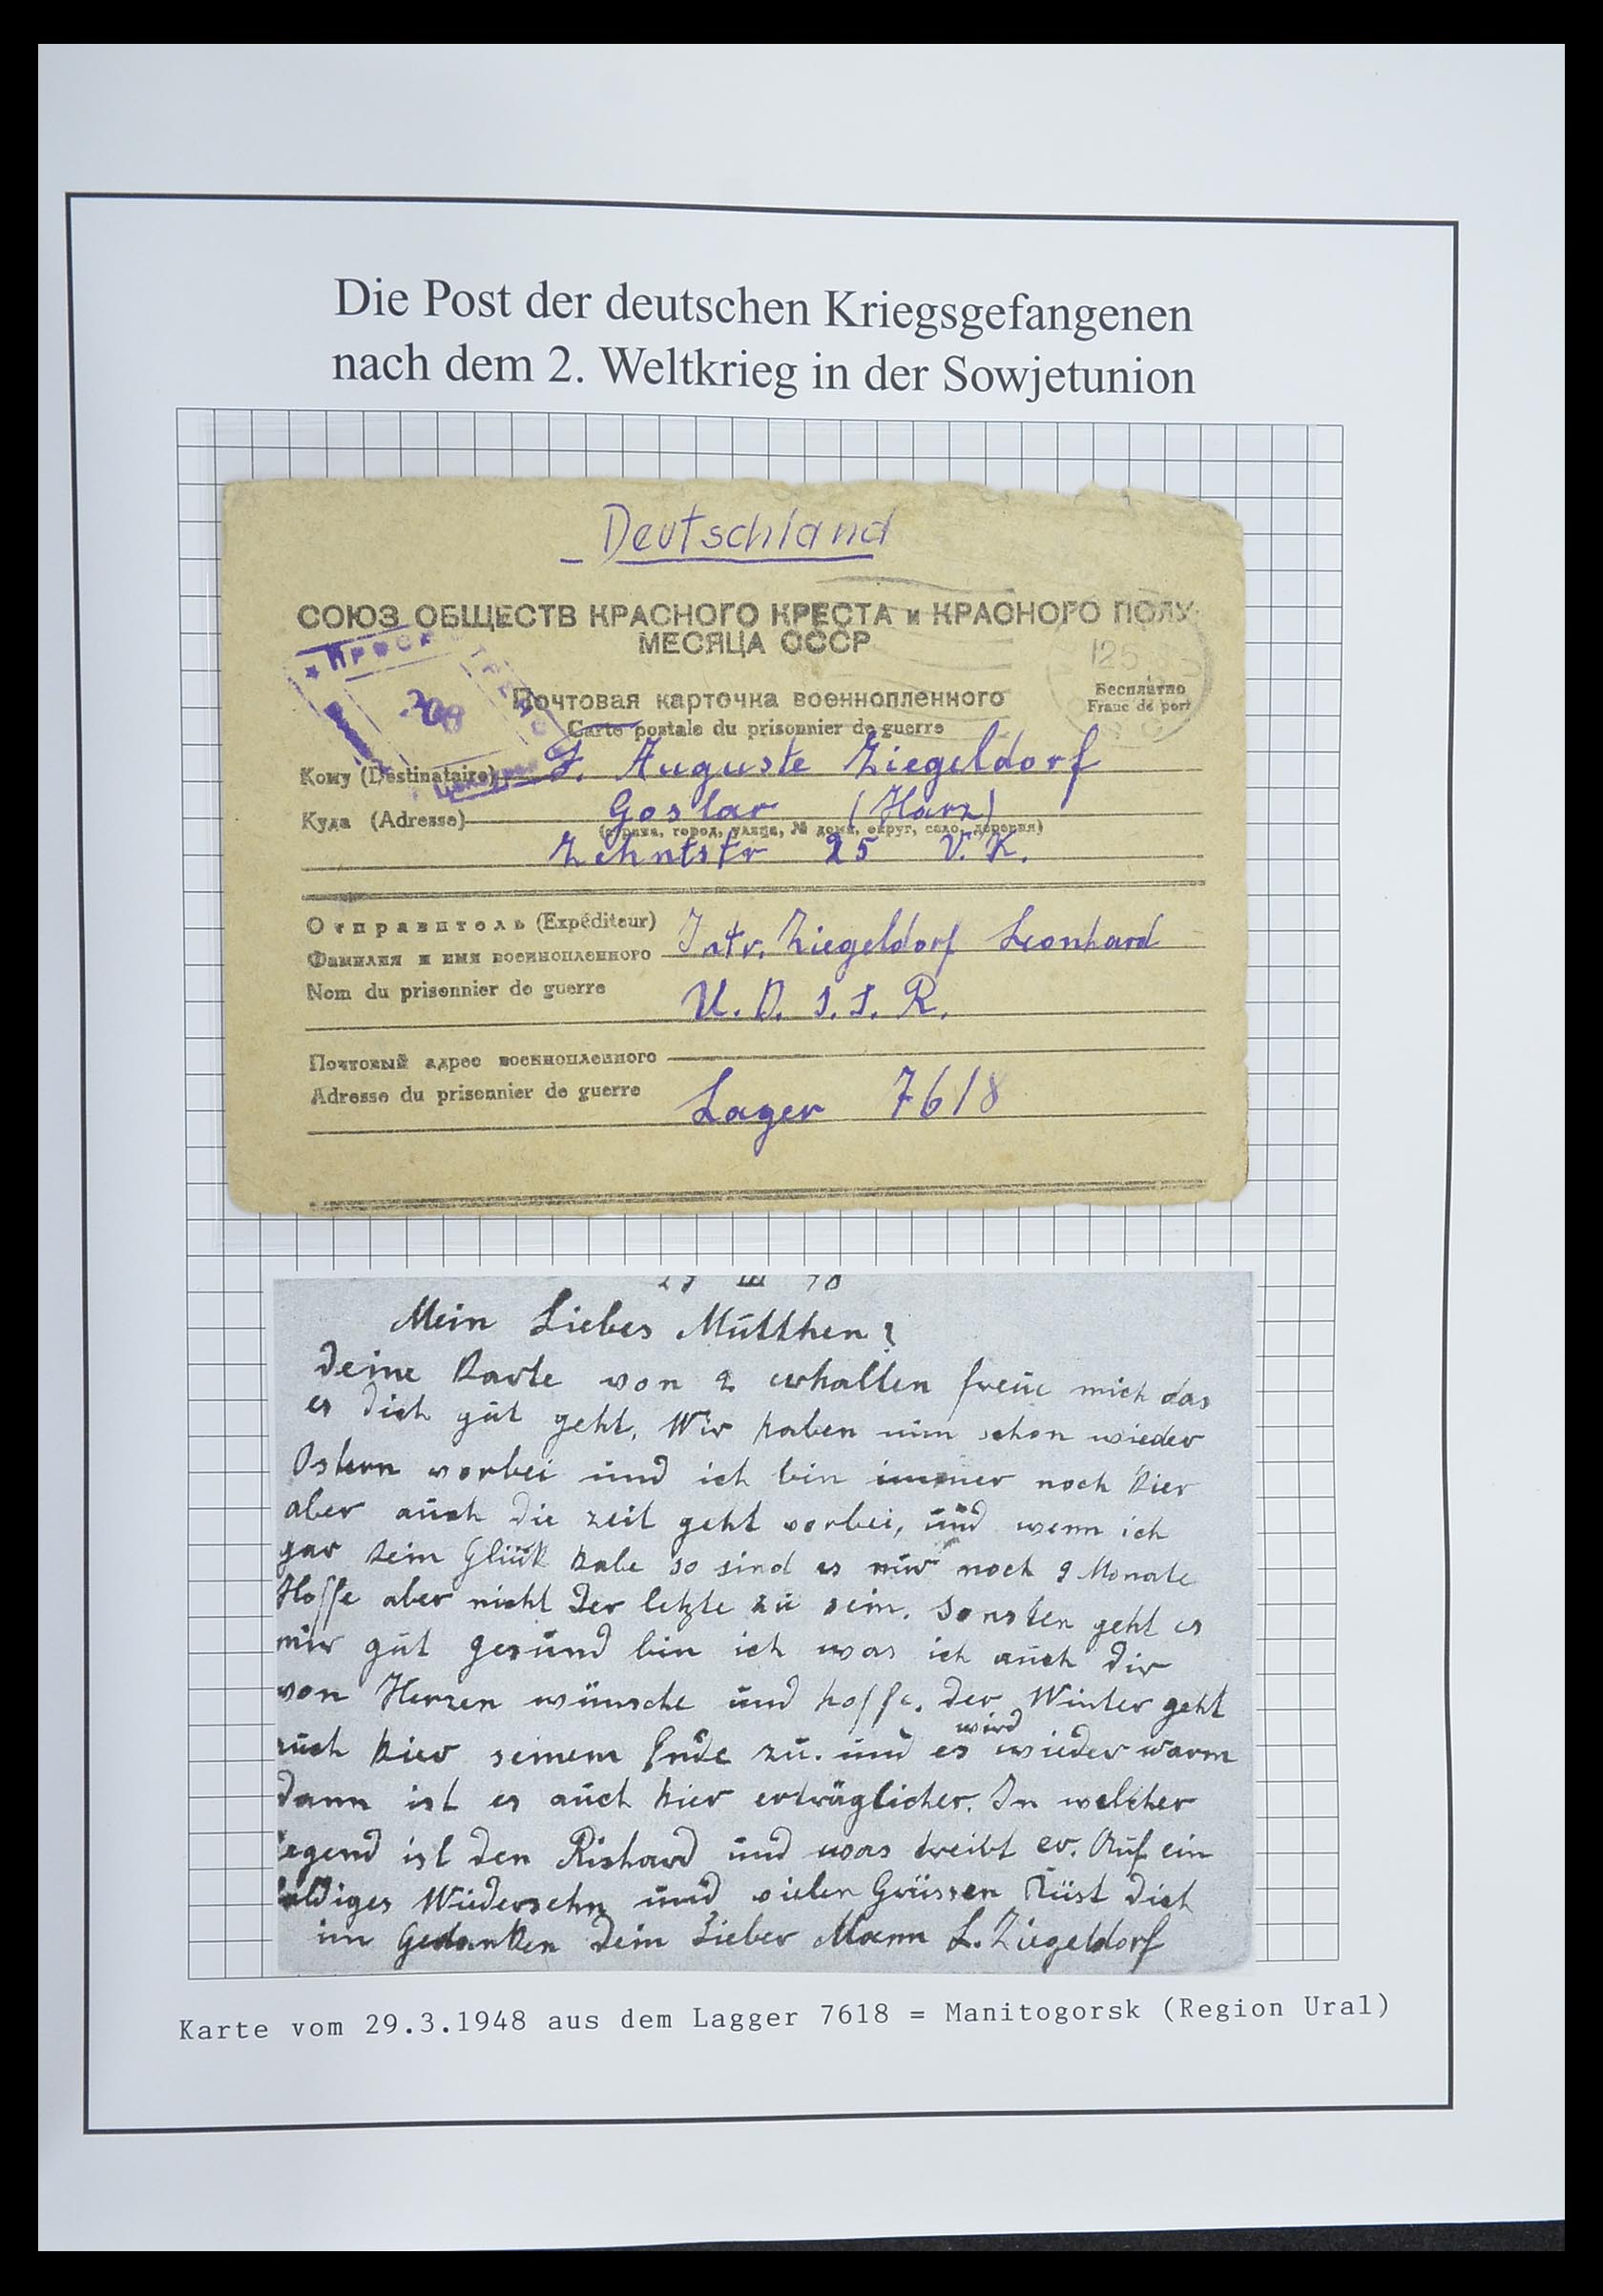 Die Post der deutschen Kriegsgefangenen
nach dem 2. Weltkrieg in der Sowjetunion
Deutschland
СОЮЗ ОБЩЕСТВ КРАСНОГО КРЕСТА и КРАСНОГО ПОЛУ-
МЕСЯЦА СССР
Почтовая карточка военнопленного
Carte postale du prisonnier de guerre
Бесплатно
Franc de port
Кому (Destinataire) F. Auguste Ziegeldorf
Куда (Adresse) Goslar (Harz)
(страна, город, улица, № дома, округ, село, деревня)
Zehntstr 25 V. K.
Отправитель (Expéditeur)
Фамилия и имя военнопленного Intr. Ziegeldorf Leonhard
Nom du prisonnier de guerre
U. D. S. S. R.
Почтовый адрес военнопленного
Adresse du prisonnier de guerre
Lager 7618
Mein Liebes Mütthen
Deine Karte von 2 erhalten freue mich das
es dich gut geht. Wir haben nun schon wieder
Ostern vorbei und ich bin immer noch hier
aber auch die zeit geht vorbei, und wenn ich
gar kein Glük habe so sind es nur noch 9 Monate
Hoffe aber nicht der letzte zu sein. Sonsten geht es
mir gut gesund bin ich was ich auch dir
von Herzen wünsche und hoffe. der Winter geht
auch hier seinem Ende zu. und es wird wieder warm
dann ist es auch hier erträglicher. In welcher
egend ist den Rishard und was treibt er. Auf ein
aldiges Wiedersehn und vielen Grüssen Küst dich
im Gedanken Dein Lieber Mann L. Ziegeldorf
Karte vom 29.3.1948 aus dem Lagger 7618 = Manitogorsk (Region Ural)